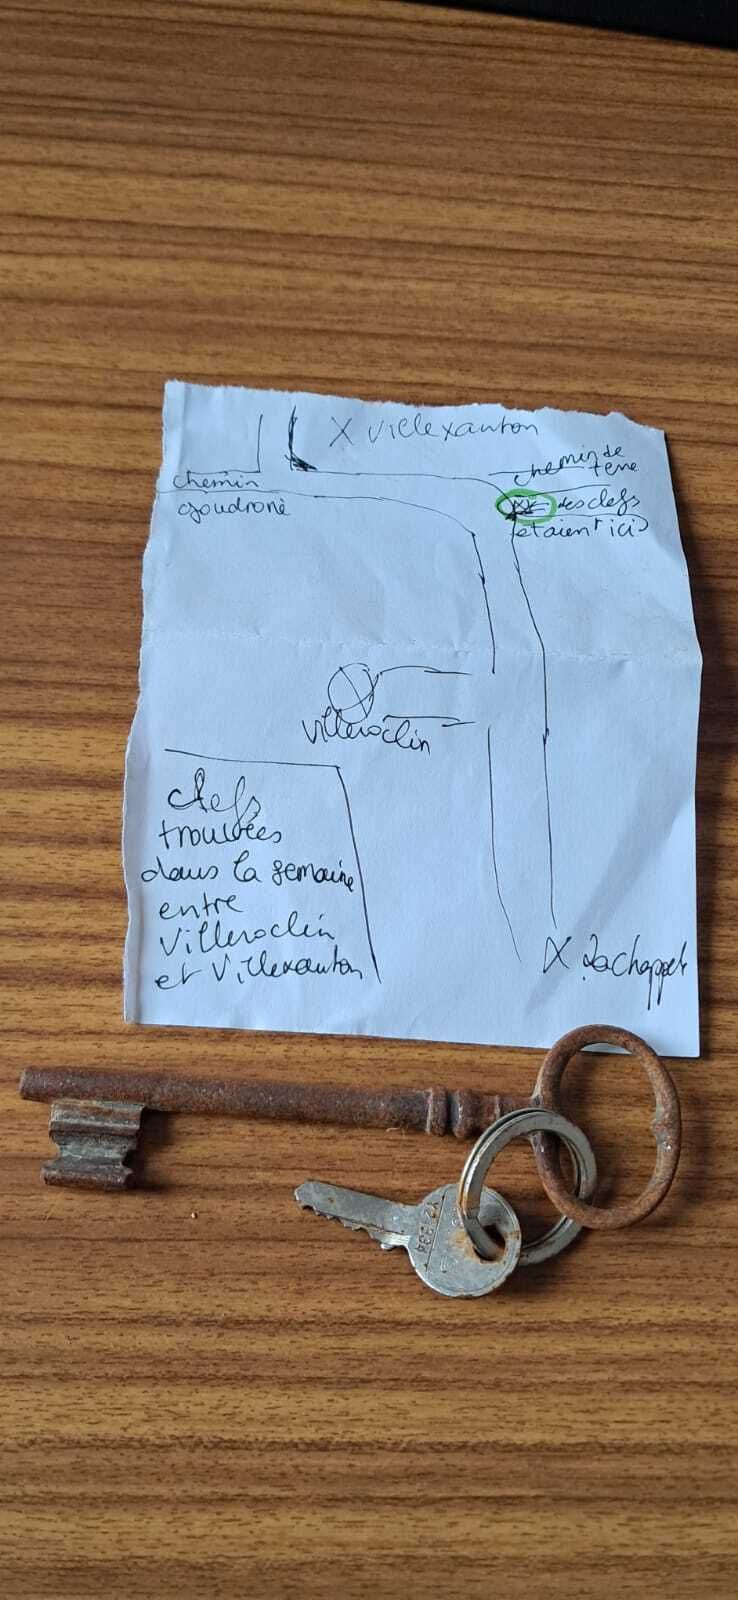 X Villexanton
chemin de
terre
chemin
goudroné
des clefs
etaient ici
Villeroclin
clefs
trouvées
dans la semaine
entre
Villeroclin
et Villexanton
X Lachappel